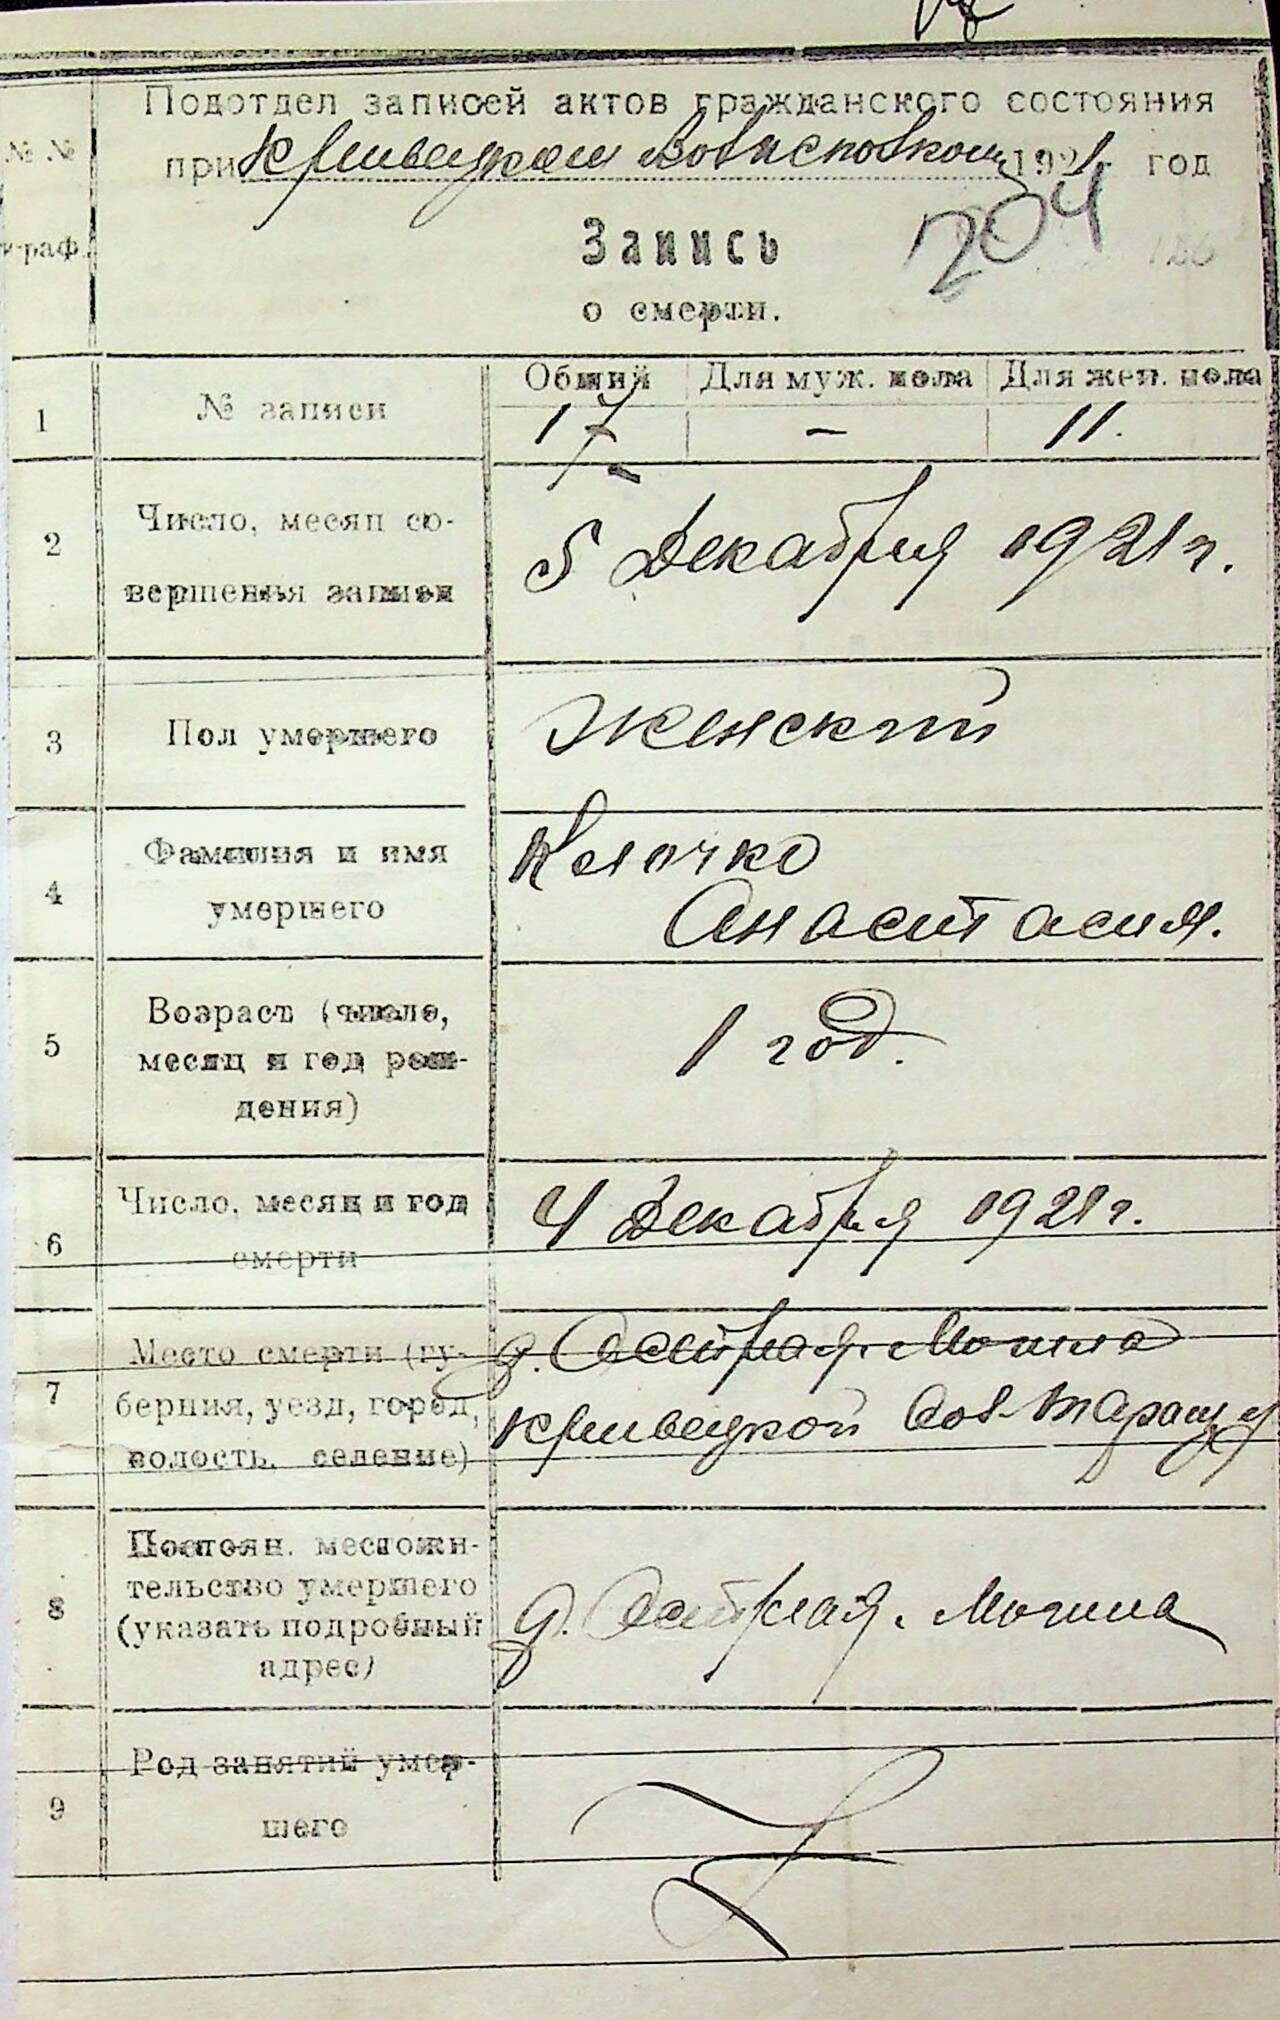 Подотдел записей актов гражданского состояния
№ №
при Кривецком Вовисполкоме 1921 год
граф.
Запись
204
о смерти.
Общий Для муж. пола Для жен. пола
1 № записи 17 – 11.
2 Число, месяц со-
вершения записи
5 Декабря 1921 г.
3 Пол умершего Женский
4 Фамилия и имя
умершего
Клочко
Анастасия.
5 Возраст (число,
месяц и год рож-
дения)
1 год.
6 Число, месяц и год
смерти
4 Декабря 1921 г.
7 Место смерти (гу-
берния, уезд, город,
волость, селение)
д. Острая Могила
Кривецкой Вол. Таращ у
8 Постоян. местожи-
тельство умершего
(указать подробный
адрес)
д. Острая Могила
9 Род занятий умер-
шего